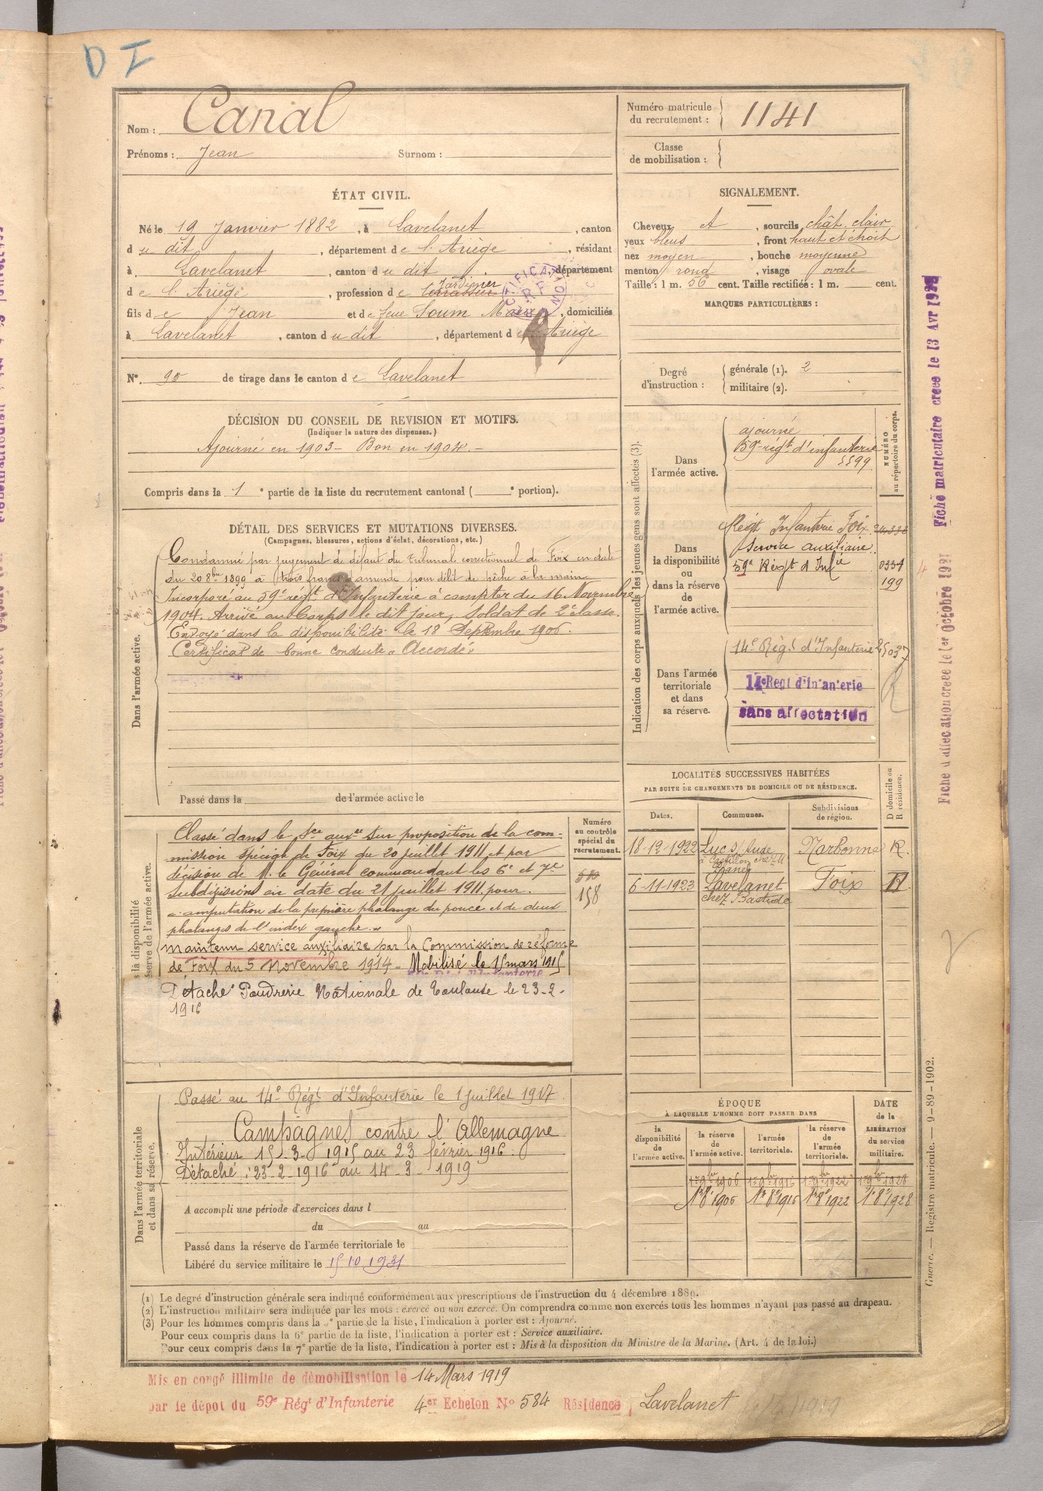 D I
Nom : Canal
Prénoms : Jean Surnom :
Numéro matricule
du recrutement : 1141
Classe
de mobilisation :
ÉTAT CIVIL.
Né le 19 Janvier 1882, à Lavelanet, canton
d u dit, département d e l'Ariège, résidant
à Lavelanet, canton d u dit, département
d e l'Ariège, profession d e Jardinier
fils d e Jean et d e feue Soum Marie, domiciliés
à Lavelanet, canton d u dit, département d e l'Ariège
N°. 90 de tirage dans le canton d e Lavelanet
SIGNALEMENT.
Cheveux et, sourcils chât. clair
yeux bleus, front haut et étroit
nez moyen, bouche moyenne
menton rond, visage ovale
Taille : 1 m. 56 cent. Taille rectifiée : 1 m. cent.
MARQUES PARTICULIÈRES :
Degré
d'instruction : générale (1). 2
militaire (2).
DÉCISION DU CONSEIL DE REVISION ET MOTIFS.
(Indiquer la nature des dispenses.)
Ajourné en 1903 - Bon en 1904. -
Compris dans la 1e partie de la liste du recrutement cantonal ( e portion).
DÉTAIL DES SERVICES ET MUTATIONS DIVERSES.
(Campagnes, blessures, actions d'éclat, décorations, etc.)
Dans l'armée active.
Condamné par jugement de défaut du Tribunal correctionnel de Foix en date
du 20 8bre 1899 à trois francs d'amende pour délit de pêche à la main
Incorporé au 59e régt d'Infanterie à compter du 16 Novembre
1904. Arrivé au Corps le dit jour, Soldat de 2e classe.
Envoyé dans la disponibilité le 18 Septembre 1906.
Certificat de bonne conduite "Accordé"
Passé dans la de l'armée active le
Indication des corps auxquels les jeunes gens sont affectés (3).
NUMÉRO
au répertoire du corps.
Dans
l'armée active.
ajourné
59e régt d'infanterie
5599
Dans
la disponibilité
ou
dans la réserve
de
l'armée active.
Régt Infanterie Foix
Service auxiliaire.
59e Régt d'Infie
0334
199
Dans l'armée
territoriale
et dans
sa réserve.
14e Régt d'Infanterie 25037
14e Régt d'Infanterie
sans affectation
LOCALITÉS SUCCESSIVES HABITÉES
PAR SUITE DE CHANGEMENTS DE DOMICILE OU DE RÉSIDENCE.
Dates. Communes. Subdivisions
de région. D domicile ou
R résidence.
18-12-1922 Luc s/ Aude Narbonne R
6-11-1923 Lavelanet Foix R
chez Bastide
Numéro
au contrôle
spécial du
recrutement.
158
Classé dans le Sce auxre sur proposition de la com-
mission spéciale de Foix du 20 juillet 1911 et par
décision de M. le Général commandant les 6e et 7e
Subdivisions en date du 21 juillet 1911 pour
"amputation de la première phalange du pouce et de deux
phalanges de l'index gauche."
Maintenu service auxiliaire par la Commission de réforme
de Foix du 5 Novembre 1914. Mobilisé le 15 mars 1915
Détaché Poudrerie Nationale de Toulouse le 23-2-
1916
Dans l'armée territoriale
et dans sa réserve.
Passé au 14e Régt d'Infanterie le 1 juillet 1917
Campagnes contre l'Allemagne
Intérieur 15-3-1915 au 23 février 1916.
Détaché : 23-2-1916 au 14-3-1919
A accompli une période d'exercices dans l
du au
Passé dans la réserve de l'armée territoriale le
Libéré du service militaire le 15 10 1931
ÉPOQUE
A LAQUELLE L'HOMME DOIT PASSER DANS
DATE
de la
LIBÉRATION
du service
militaire.
la
disponibilité
de
l'armée active.
la réserve
de
l'armée active.
l'armée
territoriale.
la réserve
de
l'armée
territoriale.
1r 8bre 1905 1r 8bre 1915 1r 8bre 1922 1r 8bre 1928
(1) Le degré d'instruction générale sera indiqué conformément aux prescriptions de l'instruction du 4 décembre 1889.
(2) L'instruction militaire sera indiquée par les mots : exercé ou non exercé. On comprendra comme non exercés tous les hommes n'ayant pas passé au drapeau.
(3) Pour les hommes compris dans la partie de la liste, l'indication à porter est : Ajourné.
Pour ceux compris dans la 6e partie de la liste, l'indication à porter est : Service auxiliaire.
Pour ceux compris dans la 7e partie de la liste, l'indication à porter est : Mis à la disposition du Ministre de la Marine. (Art. 4 de la loi.)
Mis en congé illimité de démobilisation le 14 Mars 1919
par le dépôt du 59e Régt d'Infanterie 4er Echelon No 584 Résidence Lavelanet
Guerre. — Registre matricule. — 9-89-1902.
Fiche d'affectation créée le 1er Octobre
Fiche matriculaire créée le 13 Avr